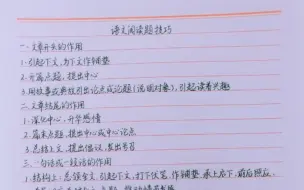 语文阅读题技巧
一.文章开头的作用
1.引起下文,为下文作铺垫
2.开篇点题,提出中心
3.用故事或典故引出论点或论题(说明对象),引起读者兴趣
二.文章结尾的作用
1.深化中心,升华感情
2.篇末点题,提出中心或中心论点
3.总结上文,提出倡议,发出号召
三.一句话或一段话的作用
1.结构上:总领全文,引起下文,打下伏笔,作铺垫,承上启下,前后照应,